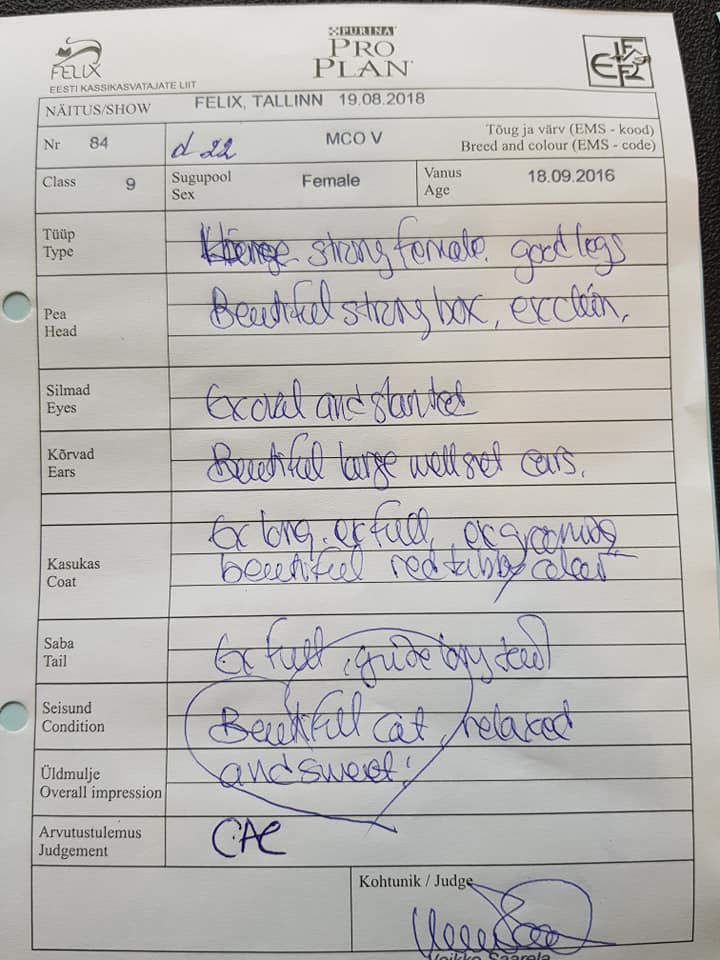 FELIX
EESTI KASSIKASVATAJATE LIIT
PURINA
PRO
PLAN
NÄITUS/SHOW FELIX, TALLINN 19.08.2018
Nr 84 d 22 MCO V Tõug ja värv (EMS - kood)
Breed and colour (EMS - code)
Class 9 Sugupool
Sex Female Vanus
Age 18.09.2016
Tüüp
Type strong female. good legs
Pea
Head Beautiful strong box, ex chin.
Silmad
Eyes Ex oval and slanted
Kõrvad
Ears Beautiful large well set ears.
Kasukas
Coat Ex long, ex full, ex grooming
beautiful red tabby
Saba
Tail Ex full, long
Seisund
Condition Beautiful cat, relaxed
Üldmulje
Overall impression and sweet!
Arvutustulemus
Judgement CAC
Kohtunik / Judge
Veikko Saarela